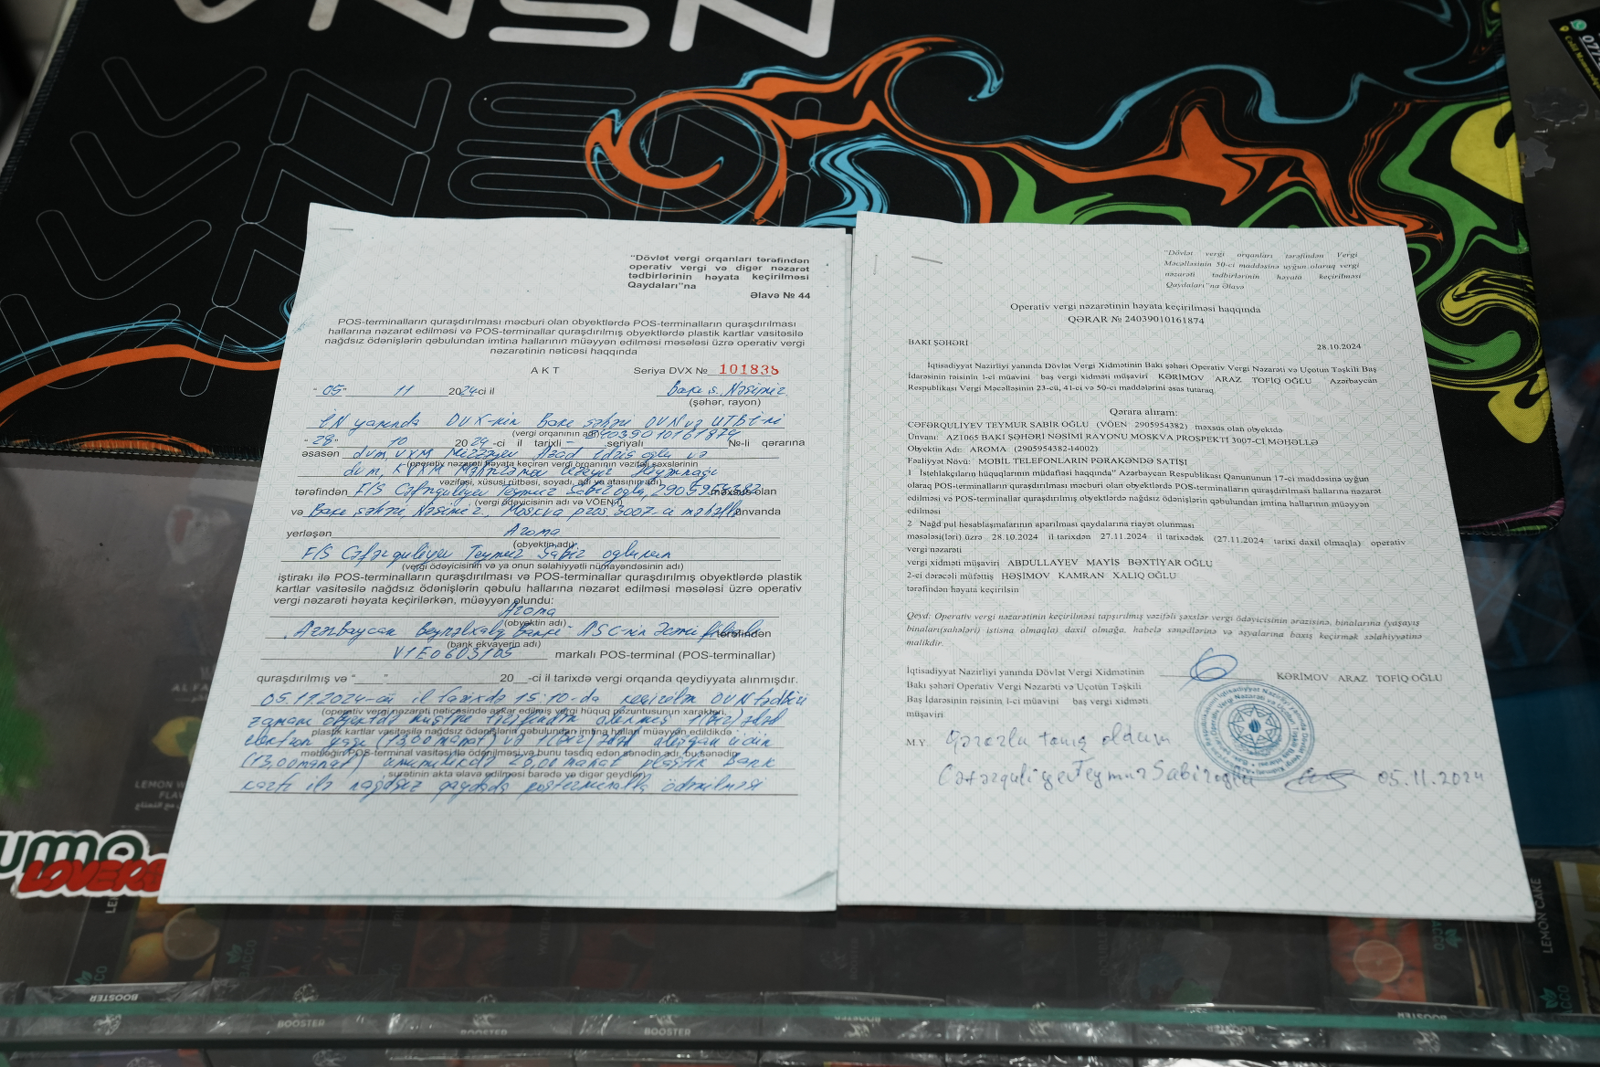 VNSN
"Dövlət vergi orqanları tərəfindən
operativ vergi və digər nəzarət
tədbirlərinin həyata keçirilməsi
Qaydaları"na
Əlavə № 44
POS-terminalların quraşdırılması məcburi olan obyektlərdə POS-terminalların quraşdırılması
hallarına nəzarət edilməsi və POS-terminallar quraşdırılmış obyektlərdə plastik kartlar vasitəsilə
nağdsız ödənişlərin qəbulundan imtina hallarının müəyyən edilməsi məsələsi üzrə operativ vergi
nəzarətinin nəticəsi haqqında
AKT Seriya DVX № 101838
"05" 11 2024-cü il Bakı ş. Nəsimi r.
(şəhər, rayon)
İN yanında DVX-nin Bakı şəhəri OVN və UTBİ-ni
(vergi orqanının adı)
"28" 10 2024-ci il tarixli seriyalı 24039010161874 №-li qərarına
əsasən dvm, VXM Azad İdris oğlu və
(operativ nəzarəti həyata keçirən vergi orqanının vəzifəli şəxslərinin
vəzifəsi, xüsusi rütbəsi, soyadı, adı və atasının adı)
tərəfindən F/Ş Cəfərquliyev Teymur Sabir oğlu, 2905954382 məxsus olan
(vergi ödəyicisinin adı və VÖEN-i)
və Bakı şəhəri, Nəsimi r., Moskva pros, 3007-ci məhəllə ünvanda
yerləşən Aroma
(obyektin adı)
F/Ş Cəfərquliyev Teymur Sabir oglunun
(vergi ödəyicisinin və ya onun səlahiyyətli nümayəndəsinin adı)
iştirakı ilə POS-terminalların quraşdırılması və POS-terminallar quraşdırılmış obyektlərdə plastik
kartlar vasitəsilə nağdsız ödənişlərin qəbulu hallarına nəzarət edilməsi məsələsi üzrə operativ
vergi nəzarəti həyata keçirilərkən, müəyyən olundu:
Aroma
(obyektin adı)
Azərbaycan Beynəlxalq Bankı ASC-nin tərəfindən
(bank ekvayerin adı)
V1E0603105 markalı POS-terminal (POS-terminallar)
quraşdırılmış və "___"___ 20__-ci il tarixdə vergi orqanda qeydiyyata alınmışdır.
05.11.2024-cü il tarixdə 15:10-da keçirilən OVN tədbiri
(operativ vergi nəzarəti nəticəsində aşkar edilmiş vergi hüquq pozuntusunun xarakteri,
zamanı obyektdə müştəri tərəfindən 1(bir) ədəd
plastik kartlar vasitəsilə nağdsız ödənişlərin qəbulundan imtina halları müəyyən edildikdə
(13,00 manat) və 1(bir) ədəd alışqan üçün
məbləğin POS-terminal vasitəsi ilə ödənilməsi və bunu təsdiq edən sənədin adı, bu sənədin
(13,00 manat) ümumilikdə 26,00 manat plastik bank
surətinin akta əlavə edilməsi barədə və digər qeydlər)
kartı ilə nağdsız qaydada posterminalla ödənilməsi
"Dövlət vergi orqanları tərəfindən Vergi
Məcəlləsinin 50-ci maddəsinə uyğun olaraq vergi
nəzarəti tədbirlərinin həyata keçirilməsi
Qaydaları"na Əlavə
Operativ vergi nəzarətinin həyata keçirilməsi haqqında
QƏRAR № 24039010161874
BAKI ŞƏHƏRİ 28.10.2024
İqtisadiyyat Nazirliyi yanında Dövlət Vergi Xidmətinin Bakı şəhəri Operativ Vergi Nəzarəti və Uçotun Təşkili Baş
İdarəsinin rəisinin 1-ci müavini baş vergi müşaviri KƏRİMOV ARAZ TOFİQ OĞLU Azərbaycan
Respublikası Vergi Məcəlləsinin 23-cü, 41-ci və 50-ci maddələrini əsas tutaraq,
Qərara alıram:
CƏFƏRQULİYEV TEYMUR SABİR OĞLU (VÖEN 2905954382) məxsus olan obyektdə
Ünvanı: AZ1065 BAKI ŞƏHƏRİ NƏSİMİ RAYONU MOSKVA PROSPEKTİ 3007-Cİ MƏHƏLLƏ
Obyektin Adı: AROMA (2905954382-14002)
Fəaliyyət Növü: MOBİL TELEFONLARIN PƏRAKƏNDƏ SATIŞI
1 İstehlakçıların hüquqlarının müdafiəsi haqqında" Azərbaycan Respublikası Qanununun 17-ci maddəsinə uyğun
olaraq POS-terminalların quraşdırılması məcburi olan obyektlərdə POS-terminalların quraşdırılması hallarına nəzarət
edilməsi və POS-terminallar quraşdırılmış obyektlərdə nağdsız ödənişlərin qəbulundan imtina hallarının müəyyən
edilməsi
2 Nağd pul hesablaşmalarının aparılması qaydalarına riayət olunması
məsələsi(ləri) üzrə 28.10.2024 il tarixdən 27.11.2024 il tarixədək (27.11.2024 tarixi daxil olmaqla) operativ
vergi nəzarəti
vergi müşaviri ABDULLAYEV MAYİS BƏXTİYAR OĞLU
2-ci dərəcəli müfəttiş HƏŞİMOV KAMRAN XALIQ OĞLU
tərəfindən həyata keçirilsin
Qeyd: Operativ vergi nəzarətinin keçirilməsi tapşırılmış vəzifəli şəxslər vergi ödəyicisinin ərazisinə, binalarına (yaşayış
binaları(sahələri) istisna olmaqla) daxil olmağa, habelə sənədlərinə və əşyalarına baxış keçirmək səlahiyyətinə
malikdir.
İqtisadiyyat Nazirliyi yanında Dövlət Vergi Xidmətinin
Bakı şəhəri Operativ Vergi Nəzarəti və Uçotun Təşkili
Baş İdarəsinin rəisinin 1-ci müavini baş vergi
müşaviri
KƏRİMOV ARAZ TOFİQ OĞLU
M.Y.
Qərarla tanış oldum
Cəfərquliyev Teymur Sabir oğlu 05.11.2024
UMO
LOVERS
LEMON CAKE
BOOSTER
BOOSTER
BOOSTER